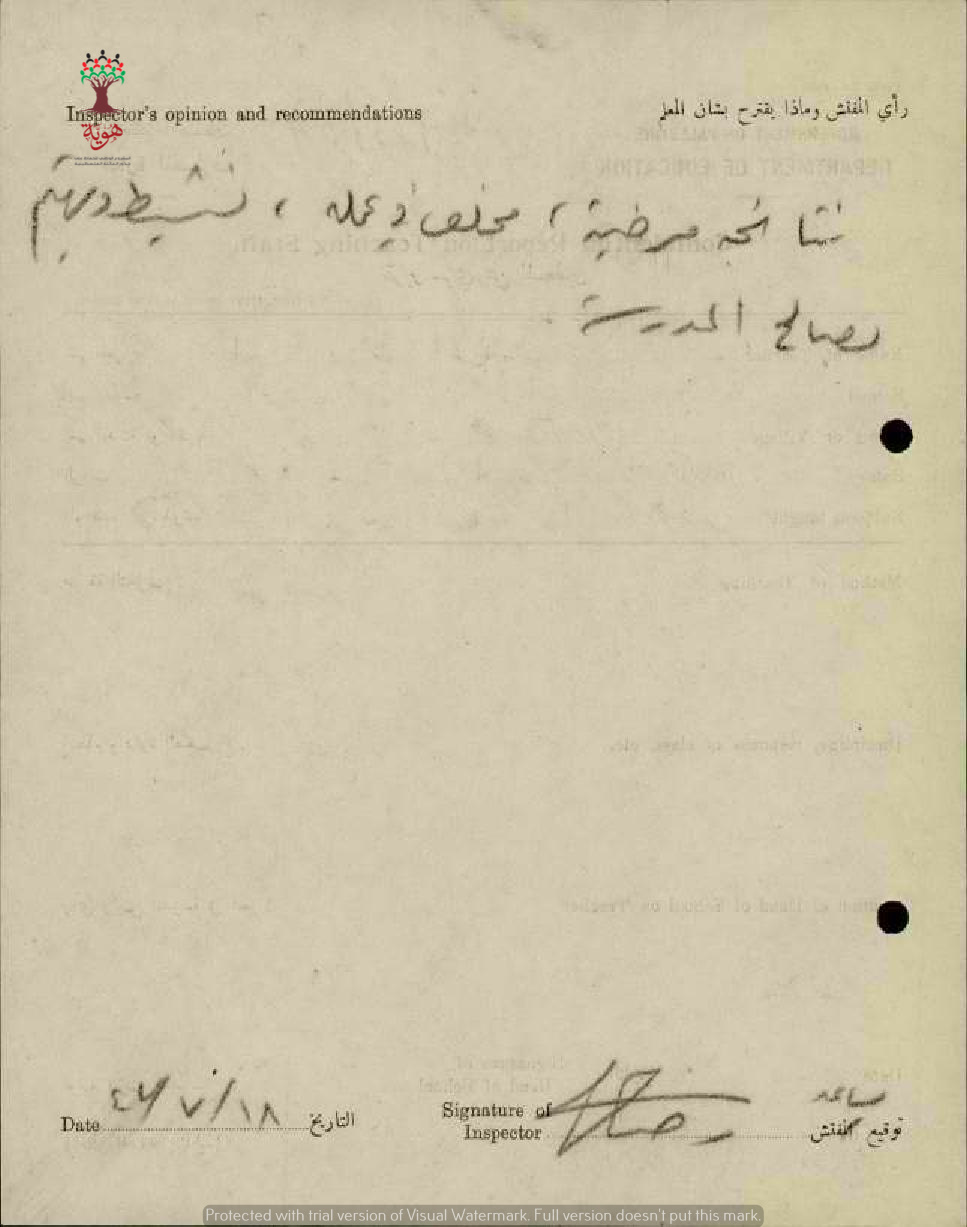 Inspector's opinion and recommendations رأي المفتش وماذا يقترح بشان المعلم
هوية
نتائجه مرضية ، مخلص في عمله ، نشيط ومهتم
بصالح المدرسة .
Date ١٨/٧/٤٦ التاريخ
Signature of Inspector مساعد توقيع المفتش
Protected with trial version of Visual Watermark. Full version doesn't put this mark.